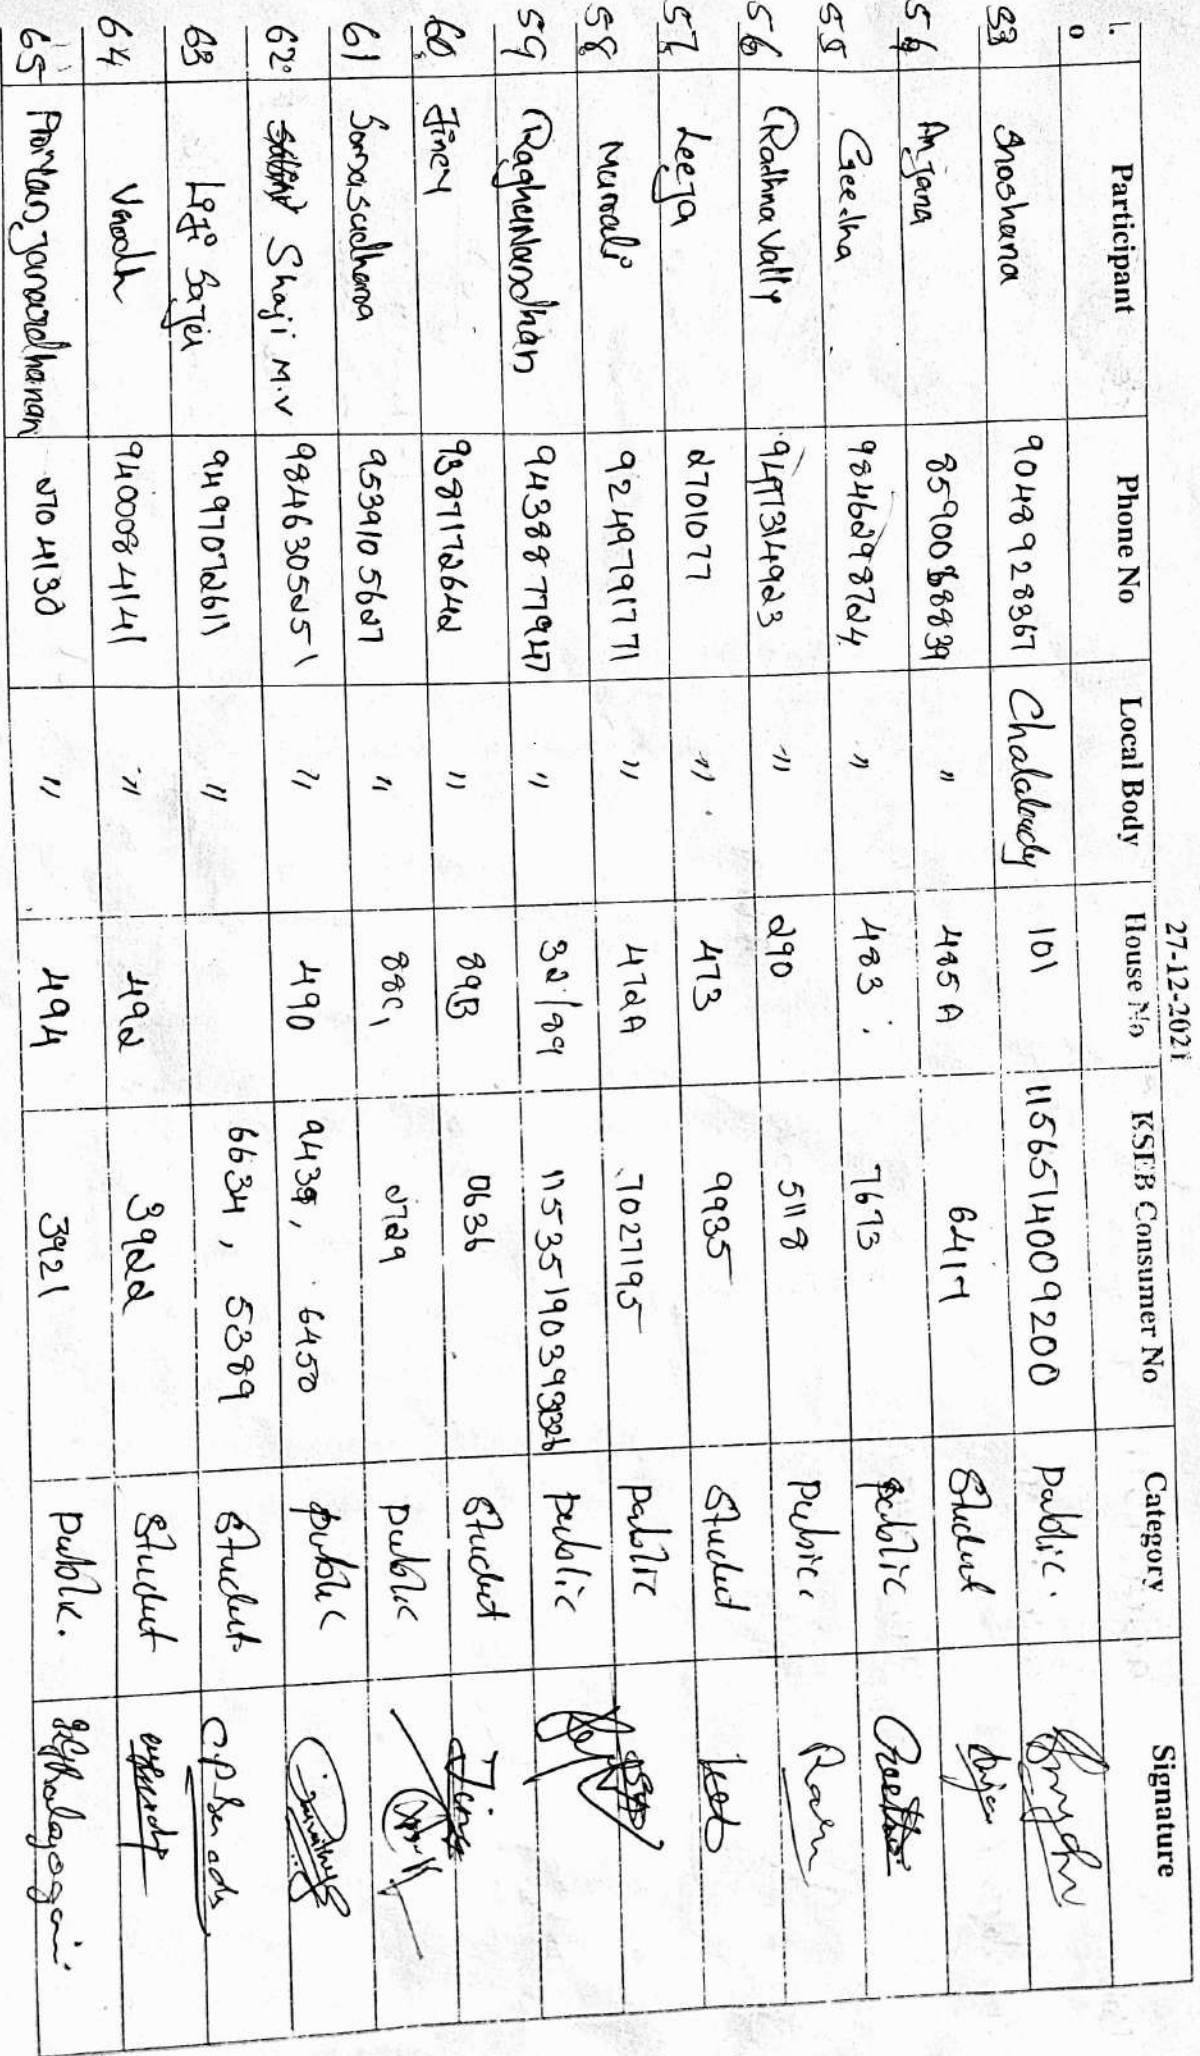 27-12-2021
l. o Participant Phone No Local Body House No KSEB Consumer No Category Signature
53 Shoshana 9048928367 Chalakudy 101 1156514009200 Public.
54 Anjana 8590068839 " 485A 6417 Student
55 Geetha 9846298724 " 483 7673 public
56 Rathna Vally 9497314923 " 290 5118 Public
57 Leeja 2701077 " 473 9935 Student
58 Murali 9249791771 " 472A 7027195 Public
59 RaghuNandhan 9438877947 " 32/89 Public
60 Jincy 9387172642 " 89B 0636 Student
61 9539105627 " 88C, 2729 Public
62 Shaji M.V 9846305251 " 490 6450 Public
63 Liji Sajeev 9497072611 " 6634, 5389 Student
64 Vinodh 9400084141 " 492 3922 Student
65 2704130 " 494 3921 Public.